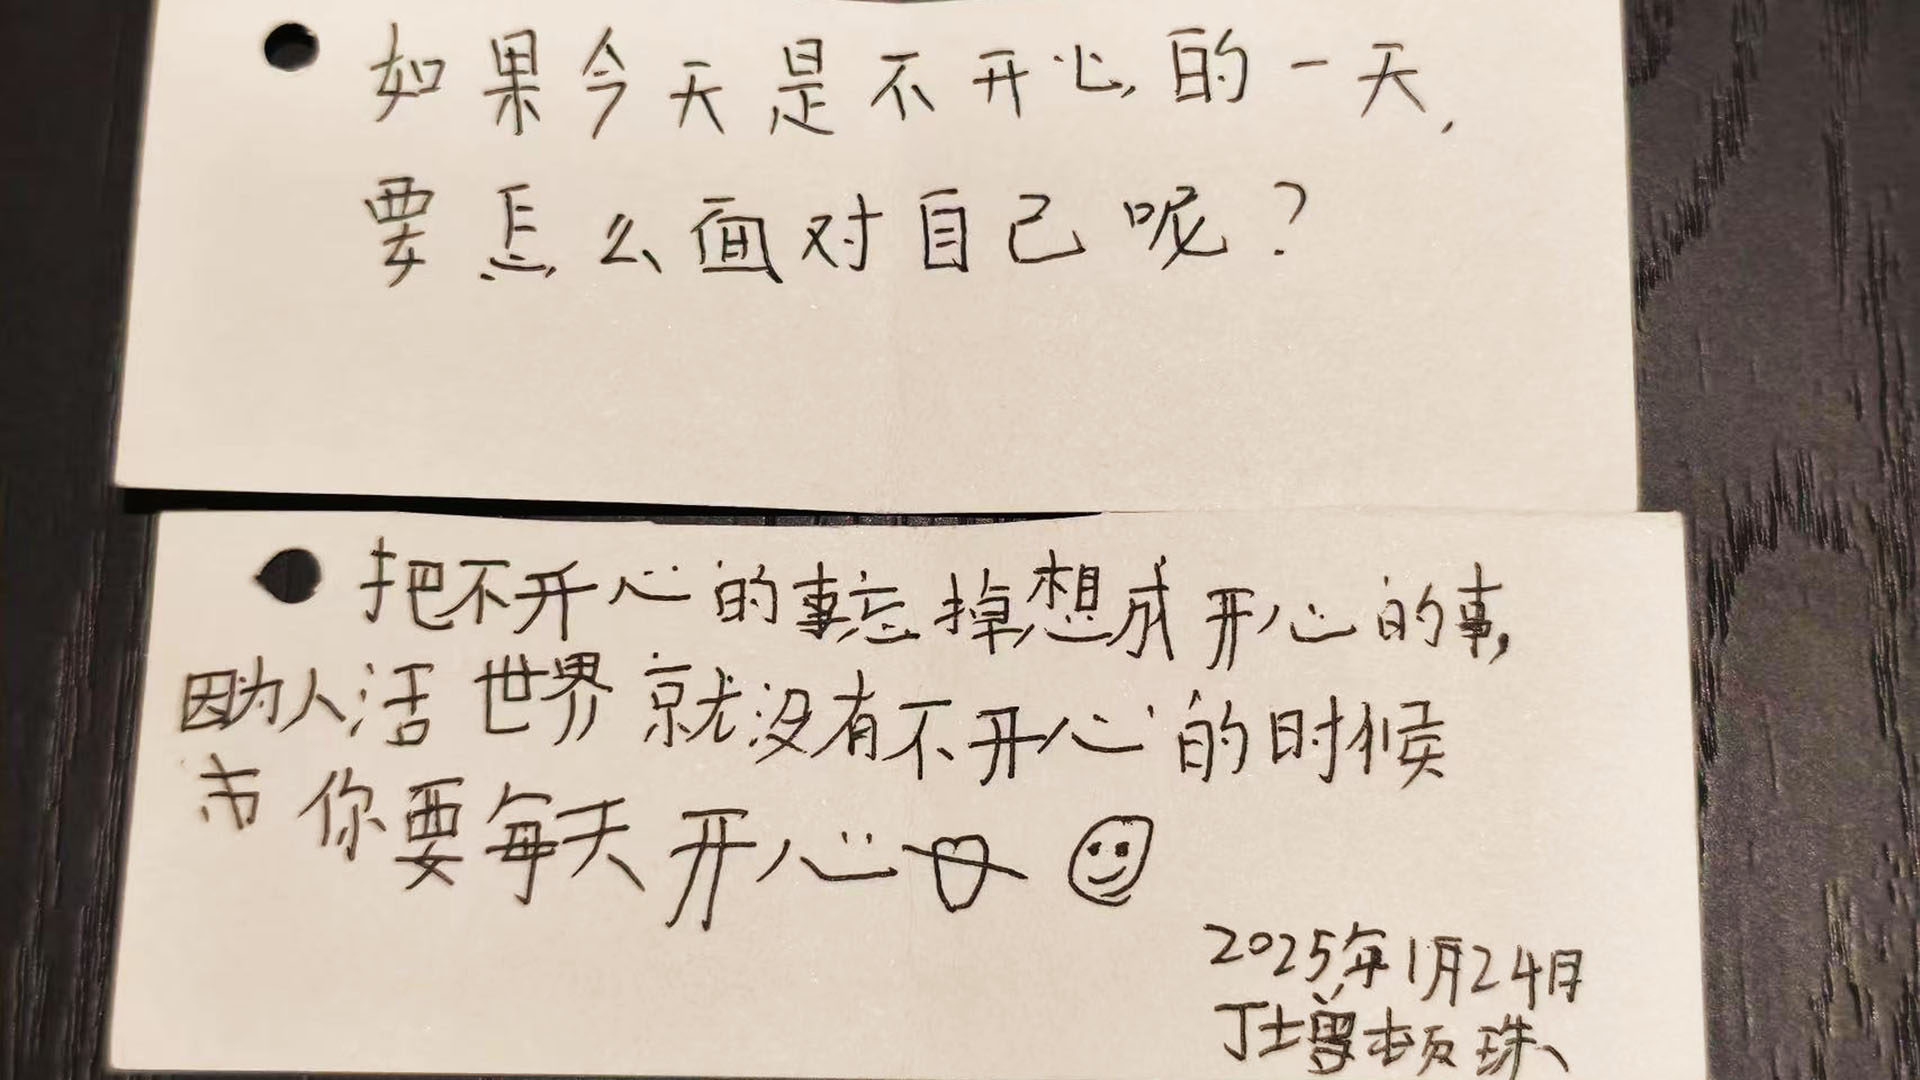 如果今天是不开心的一天,
要怎么面对自己呢?
把不开心的事忘掉,想成开心的事,
因为人活世界就没有不开心的时候
你要每天开心
2025年1月24月
丁增顿珠